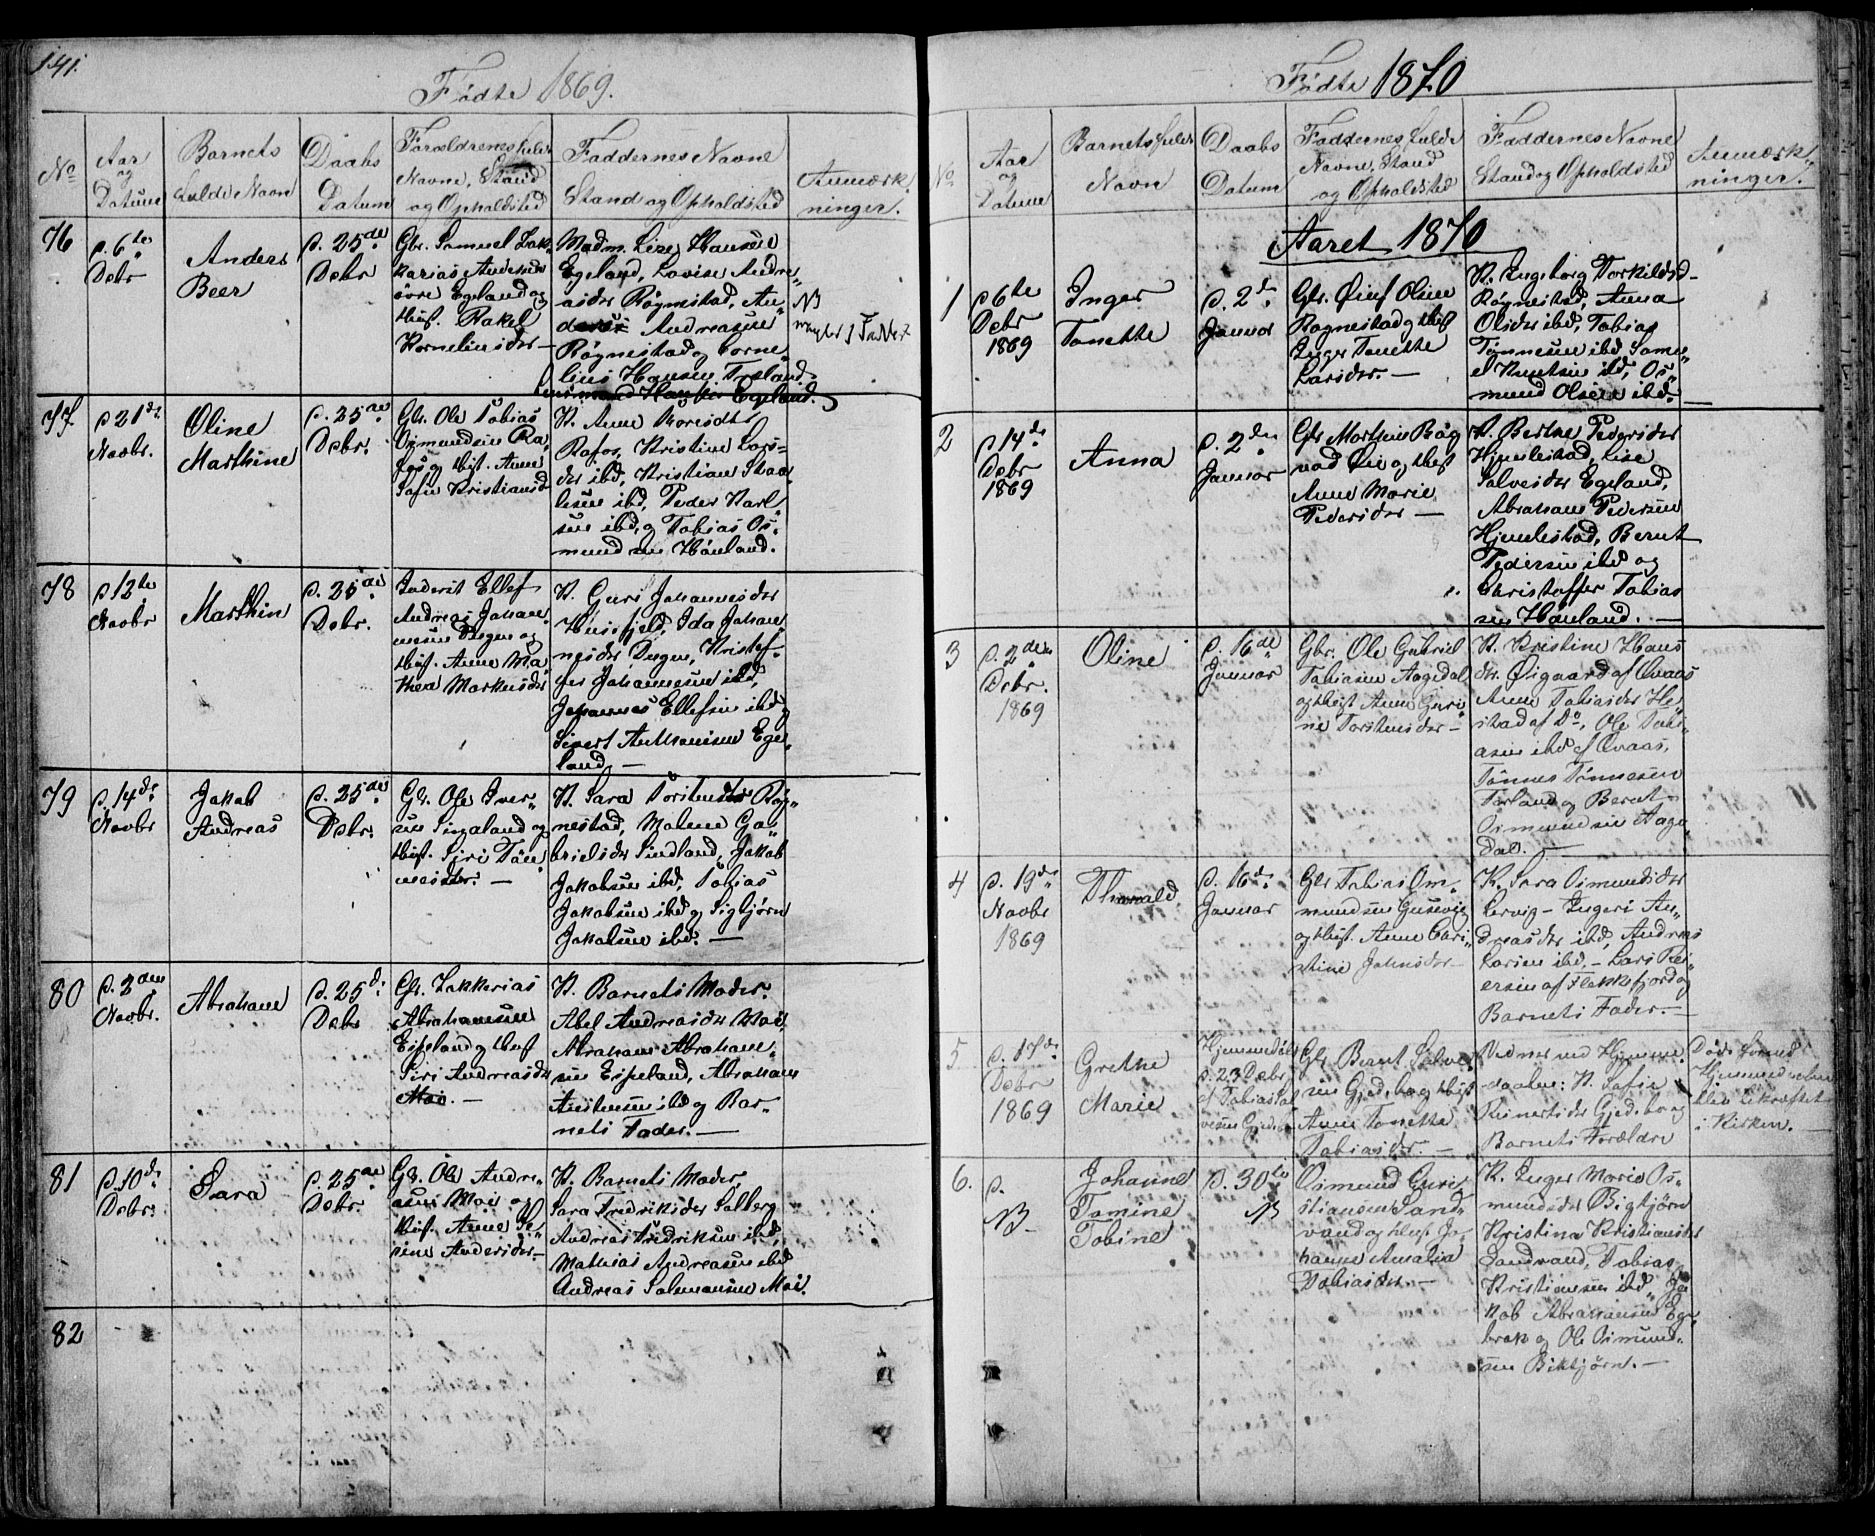 141.
Fødte 1869.
No
Aar og Datum
Barnets fulde Navn
Daabs Datum
Forældrenes fulde Navne, Stand og Opholdsted
Faddernes Navne Stand og Opholdsted
Anmærkninger.
76
d. 6te Debr
Anders Beer
d. 25de Debr
Gbr. Samuel Zak
karias Andersen
øvre Egeland og
Hust. Rakel
Korneliusdr —
Madm. Lise Hansen
Egeland, Lovise Andre
asdr Røgnestad, An
Andreassen
Røgnestad og Corne
lius Hansen Træland
Egeland.
NB
mangler 1 Fadder
77
d 21de Novbr.
Oline Marthine
d. 25de Debr.
Gbr. Ole Tobias
Osmundsen Ra
fos og Hust. Anne
Sofie Kristiansd
K. Anne
Rafos, Kristine Lars-
dr ibd, Kristian
ibd, Peder Karl
sen ibd, og Tobias Os-
mundsen Hånland.
78
d 12te Novbr
Marthin
d. 25de Debr.
Inderst Ellef
Andreas Johan
nesen Dugen og
Hust. Anne Ma
thea Markusdr
K. Guri Johannesdr
Husefjeld, Ida Johan
nesdr Dugen, Kristof
fer Johannesen ibd,
Johannes Ellefsen ibd og
Sivert Anthonisen Ege-
land —
79
d. 14de Novbr
Jakob Andreas
d. 25de Debr.
Gbr. Ole Iver-
sen Sirgaland og
Hust. Siri Tøn
nesdr. —
K. Sara Torstensdr Røg-
nestad, Malene Ga-
brielsdr Sindland, Jakob
Jakobsen ibd, Tobias
Jakobsen ibd og Sigbjørn
Jakobsen ibd. —
80
d. 2den Novbr.
Abraham
d. 25de Debr
Gbr. Zakkarias
Abrahamsen
Espeland og Hust
Siri Andreasdr
Moi. —
K. Barnets Moder.
Abel Andreasdr Moi
Abraham Abraham-
sen Espeland, Abraham
Anstensen ibd og Bar-
nets Fader. —
81
d. 10de Debr.
Sara
d. 25de Debr.
Gbr. Ole Andre-
asen Moi og
Hust. Anne Se-
rine Andersdr —
K. Barnets Moder,
Sara Fredriksdr Solberg
Andreas Fredriksen ibd,
Mathias Andreasen ibd
Andreas Salomonsen Moi.
82
Fødte 1870
No
Aar og Datum
Barnets fulde Navn
Daabs Datum
Faddernes fulde Navne, Stand og Opholdsted
Faddernes Navne Stand og Opholdsted
Anmærkninger.
Aaret 1870
1
d 6te Debr 1869
Inger Tonette
d. 2de Januar
Gbr. Oluf Olsen
Rognestad og Hust
Inger Tonette
Larsdr. —
K. Ingeborg Torkildsd
Røgnestad, Anna
Olsdr ibd, Tobias
Tønnesen ibd, Samu
el Knutsen ibd, Os-
mund Olsen ibd. —
2
d 14de Debr 1869
Anna
d. 2den Januar
Gbr Morthen Røg
vad Øie og Hust
Anne Marie
Pedersdr —
K. Berthe Pedersdr
Hjemlestad, Lise
Salvesdr Egeland,
Abraham Pedersen
Hjemlestad, Bernt
Pedersen ibd og
Christoffer Tobias
sen Hånland. —
3
d. 2den Debr. 1869
Oline
d. 16de Januar
Gbr. Ole Gabriel
Tobiasen Aagedal
og Hust Anne Guri
ne Torstensdr —
K. Kristine Hans
dr. Øigaard af Qvaas
Anne Tobiasdr He
stad af Do, Ole Tobi-
asen ibd af Qvaas,
Tønnes Tønnesen
Førland og Bernt
Osmundsen Aage
dal. —
4
d. 19de Novbr 1869
Thorvald
d. 16de Januar
Gbr Tobias Om
mundsen Gusevig
og Hust. Anne Cari
stine Johnsdr —
K. Sara Osmundsdr
Lervig – Ingeri An-
dreasdr ibd, Andreas
Larsen ibd. – Lars Rei-
ersen af Flekkefjord og
Barnets Fader. —
5
d. 17de Debr 1869
Grethe Marie
Hjemmedøbt
d. 23 Debr
af Tobias Sal
vesen Gjedebo
Gbr Bernt Salve
sen Gjedebo og Hust
Anne Tonette
Tobiasdr. —
Vidner ved Hjemme
daaben: K. Sofie
Reinertsdr Gjedebo og
Barnets Forældre
Døde forend
Hjemmedaaben
blev bekræftet
i Kirken. —
6.
d.
NB –
Johanne Tomine Tobine
d. 30te
NB
Osmund Guri
stiansen Sand
vand og Hust Jo
hanne Amalia
Tobiasdr. —
K. Inger Marie Os-
mundsdr Bigtjørn
Kristina Kristiansdr
Sandvand, Tobias
Kristiansen ibd, Ja
kob Abrahamsen Eg-
brek og Ole Osmund-
sen Biktjørn. —